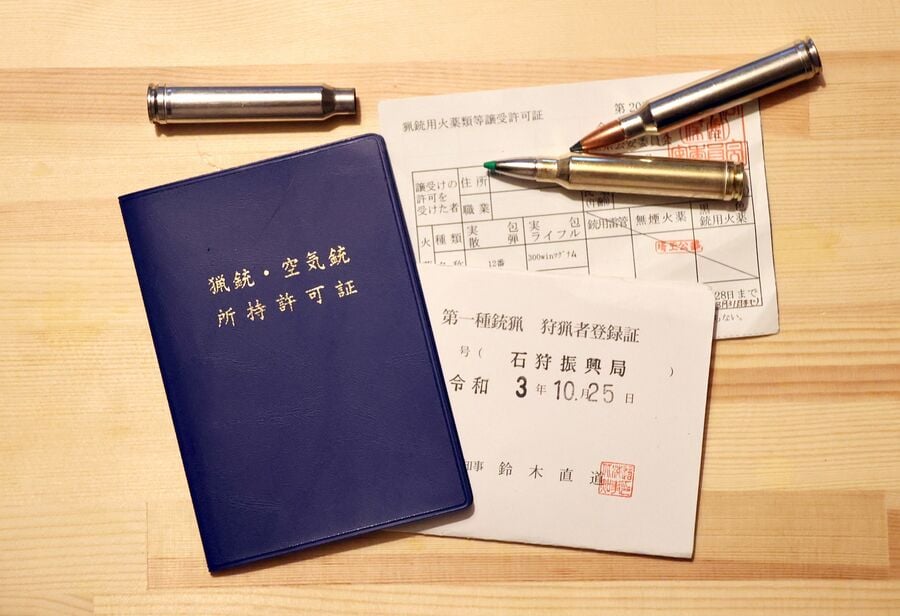 猟銃・空気銃
所持許可証
猟銃用火薬類等譲受許可証
第20
譲受けの
許可を
受けた者
住所
職業
火
種類
実包
散弾
実包
ライフル
銃用雷管
無煙火薬
銃用火薬
12番
300winマグナム
28日まで
第一種銃猟 狩猟者登録証
号(
石狩振興局
)
令和 3年10.月25日
知事 鈴木直道